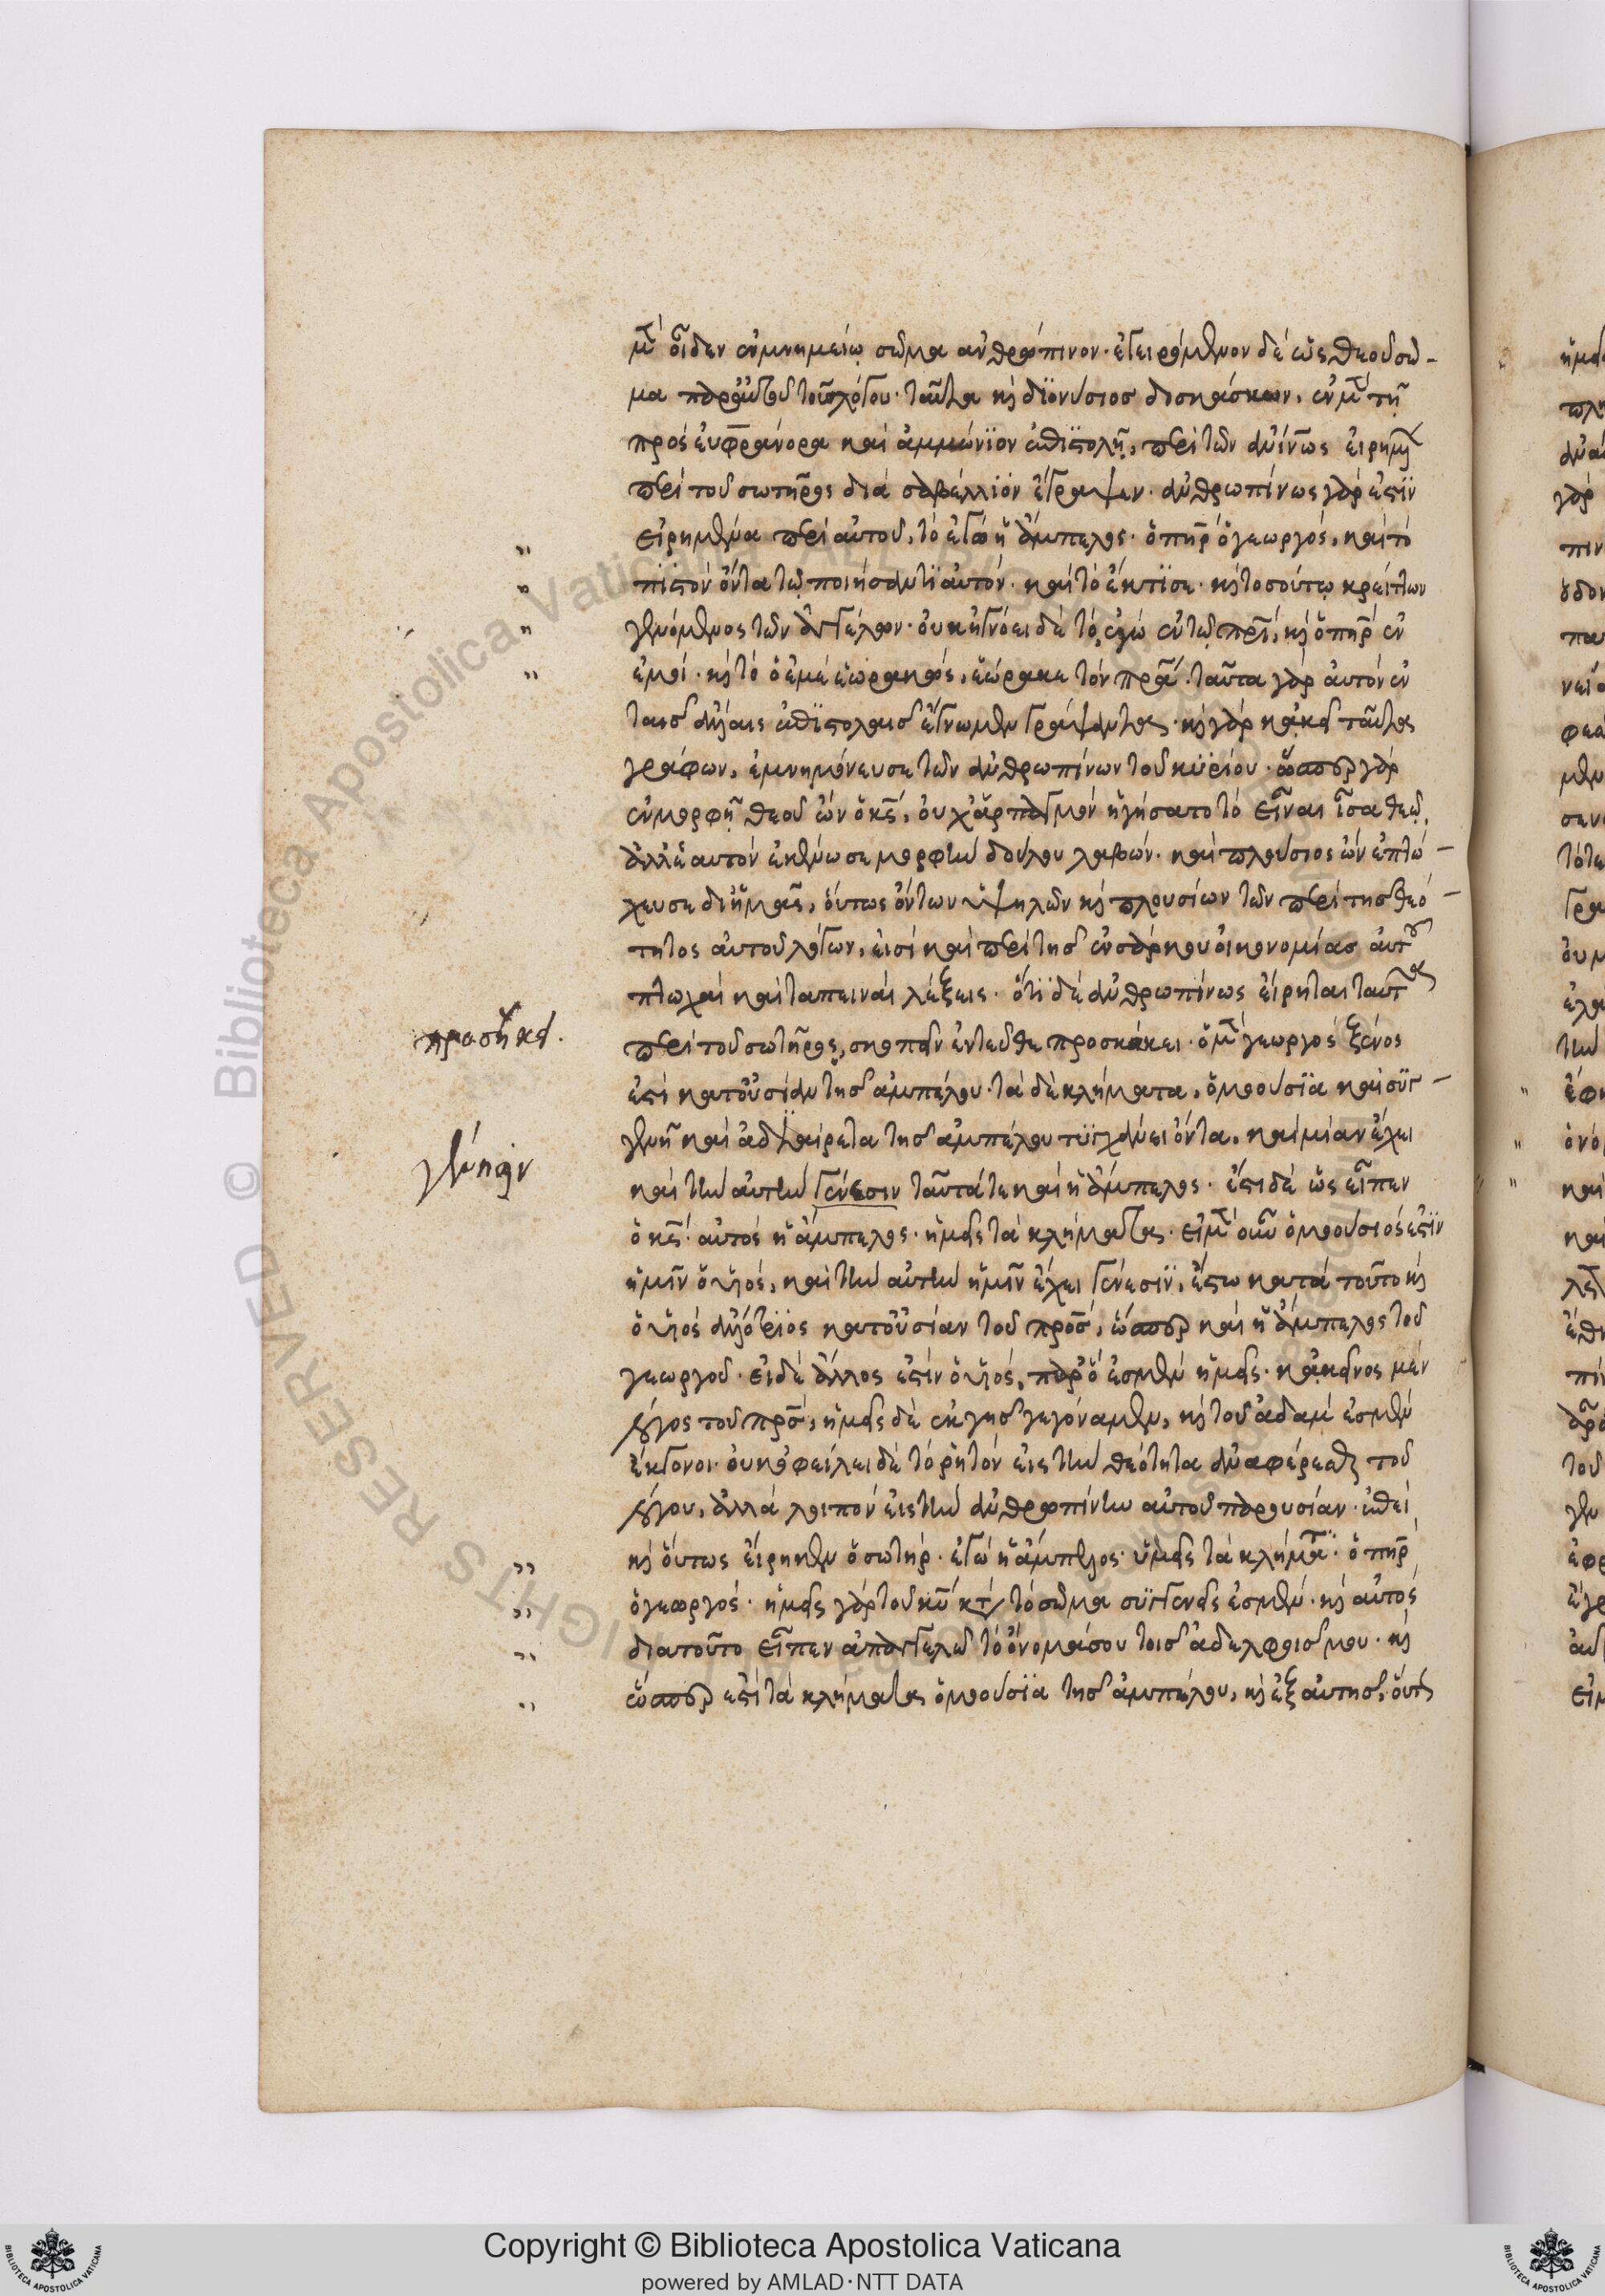 μὲν οἶδεν ἐν μνημείῳ σῶμα ἀνθρώπινον· ἐγειρόμενον δὲ ὡς θεοῦ σῶ-
μα παρ' αὐτοῦ τοῦ λόγου· ταῦτα καὶ διονύσιος διδάσκων, ἐν μὲν τῇ
πρὸς εὐφράνορα καὶ ἀμμώνϊον ἐπϊστολῇ, περὶ τῶν ἀνθρωπίνως εἰρημένων
περὶ τοῦ σωτῆρος διὰ σαβέλλϊον ἔγραψεν· ἀνθρωπίνως γάρ ἐστϊν
εἰρημένα περὶ αὐτοῦ, τὸ ἐγὼ ἡ ἄμπελος· ὁ πὴρ ὁ γεωργός, καὶ τὸ
πϊστὸν ὄντα τῷ ποιήσαντϊ αὐτόν· καὶ τὸ ἔκτϊσε· καὶ τοσούτῳ κρείττων
γενόμενος τῶν ἀγγέλων· οὐκ ἠγνόει δὲ τὸ, ἐγὼ ἐν τῷ πρὶ, καὶ ὁ πὴρ ἐν
ἐμοί· καὶ τὸ ὁ ἐμὲ ἑωρακὼς, ἑώρακε τὸν πρα· ταῦτα γὰρ αὐτὸν ἐν
ταῖς ἄλλαις ἐπϊστολαῖς ἔγνωμεν γράψαντα· καὶ γὰρ κἀκεῖ ταῦτα
γράφων, ἐμνημόνευσε τῶν ἀνθρωπίνων τοῦ κυρίου· ὥσπερ γὰρ
ἐν μορφῇ θεοῦ ὢν ὁ κς, οὐχ ἁρπαγμὸν ἡγήσατο τὸ εἶναι ἶσα θεῷ,
ἀλλ' ἑαυτὸν ἐκένωσε μορφὴν δούλου λαβών· καὶ πλούσιος ὢν ἐπτώ-
χευσε δι' ἡμᾶς, οὕτως ὄντων ὑψηλῶν καὶ πλουσίων τῶν περὶ τῆς θεό-
τητος αὐτοῦ λόγων, εἰσὶ καὶ περὶ τῆς ἐνσάρκου οἰκονομίας αὐτοῦ
πτωχαὶ καὶ ταπειναὶ λέξεις· ὅτϊ δὲ ἀνθρωπίνως εἴρηται ταῦτα
περὶ τοῦ σωτῆρος, σκοπεῖν ἐντεῦθε προσήκει· ὁ μὲν γεωργὸς ξένος
ἐστὶ κατ' οὐσίαν τῆς ἀμπέλου· τὰ δὲ κλήματα, ὁμοούσϊα καὶ συγ-
γενῆ καὶ ἀδιαίρετα τῆς ἀμπέλου τυγχάνει ὄντα, καὶ μίαν ἔχει
καὶ τὴν αὐτὴν γένεσιν ταῦτά τε καὶ ἡ ἄμπελος· ἔστι δὲ ὡς εἶπεν
ὁ κς· αὐτὸς ἡ ἄμπελος· ἡμεῖς τὰ κλήματα· εἰ μὲν οὖν ὁμοούσιός ἐστϊν
ἡμῖν ὁ υἱός, καὶ τὴν αὐτὴν ἡμῖν ἔχει γένεσϊν, ἔστω κατὰ τοῦτο καὶ
ὁ υἱὸς ἀλλότριος κατ' οὐσίαν τοῦ πρς, ὥσπερ καὶ ἡ ἄμπελος τοῦ
γεωργοῦ· εἰ δὲ ἄλλος ἐστὶν ὁ υἱός, παρ' ὅ ἐσμὲν ἡμεῖς· κἀκεῖνος μὲν
λόγος τοῦ πρς, ἡμεῖς δὲ ἐκ γῆς γεγόναμεν, καὶ τοῦ ἀδάμ ἐσμὲν
ἔκγονοι· οὐκ ὀφείλει δὲ τὸ ῥητὸν εἰς τὴν θεότητα ἀναφέρεσθαι τοῦ
λόγου, ἀλλὰ λοιπὸν εἰς τὴν ἀνθρωπίνην αὐτοῦ παρουσίαν· ἐπεὶ
καὶ οὕτως εἴρηκεν ὁ σωτήρ· ἐγὼ ἡ ἄμπελος· ὑμεῖς τὰ κλήματα· ὁ πὴρ
ὁ γεωργός· ἡμεῖς γὰρ τοῦ κυ κτ τὸ σῶμα συγγενεῖς ἐσμέν· καὶ αὐτὸς
διατοῦτο εἶπεν ἀπαγγελῶ τὸ ὄνομά σου τοῖς ἀδελφοῖς μου· καὶ
ὥσπερ ἐστὶ τὰ κλήματα ὁμοούσϊα τῆς ἀμπέλου, καὶ ἐξ αὐτῆς, οὕτως